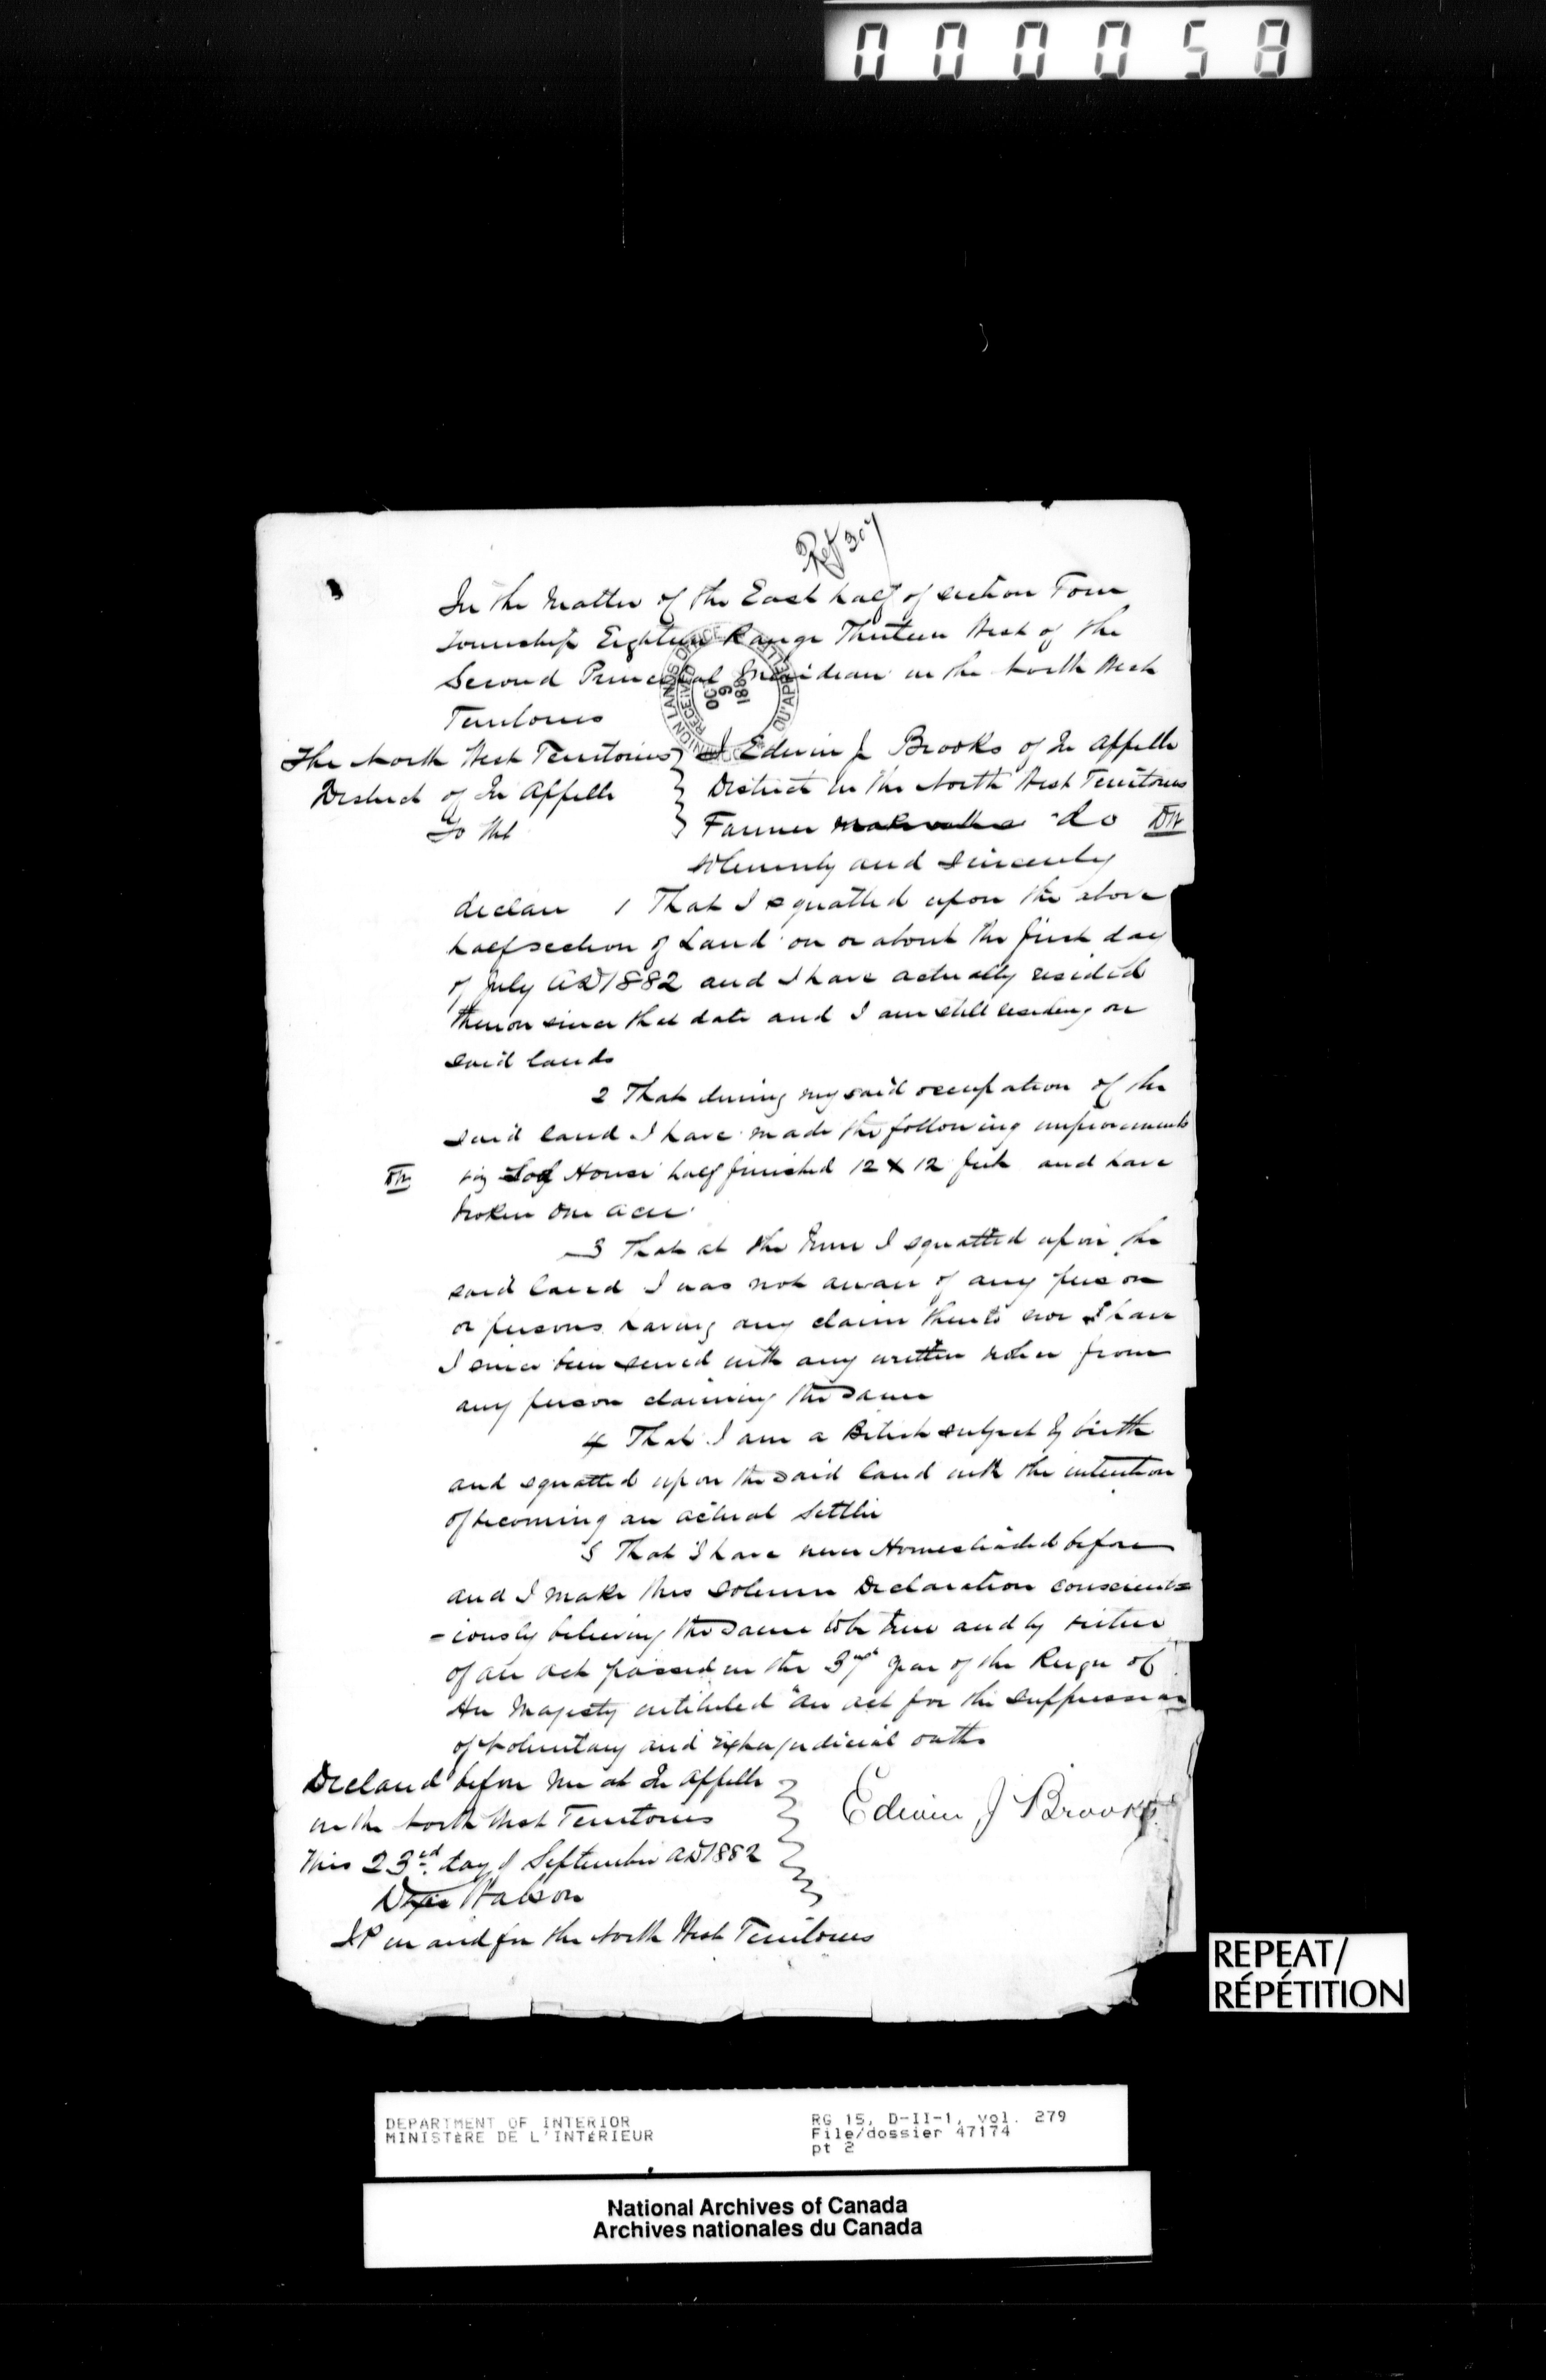 000058
Ref 307
In the Matter of the East half of section Four
Township Eighteen Range Thirteen West of the
Second Principal Meridian in the North West
Territories
DOMINION LANDS OFFICE QU'APPELLE
RECEIVED
OC
9
188
The North West Territories
District of Qu Appelle
To Wit
I Edwin J Brooks of Qu Appelle
District in the North West Territories
Farmer do DW
solemnly and sincerely
declare 1 That I squatted upon the above
half section of Land on or about the first day
of July AD 1882 and I have actually resided
thereon since that date and I am still residing on
said lands
2 That during my said occupation of the
said land I have made the following improvements
DW viz Log House half finished 12 x 12 feet and have
broken One acre
3 That at the time I squatted upon the
said land I was not aware of any person
or persons having any claim thereto nor have
I since been served with any written notice from
any person claiming the same
4 That I am a British subject by birth
and squatted upon the said land with the intention
of becoming an actual Settler
5 That I have never Homesteaded before
and I make this solemn Declaration conscient=
-iously believing the same to be true and by virtue
of an act passed in the 37th year of the Reign of
Her Majesty intituled "an act for the suppression
of voluntary and extra judicial oaths
Declared before me at Qu Appelle
in the North West Territories
This 23rd day of September AD 1882
Edwin J Brooks
Watson
JP in and for the North West Territories
REPEAT/
RÉPÉTITION
DEPARTMENT OF INTERIOR
MINISTÈRE DE L'INTÉRIEUR
RG 15, D-II-1, vol. 279
File/dossier 47174
pt 2
National Archives of Canada
Archives nationales du Canada